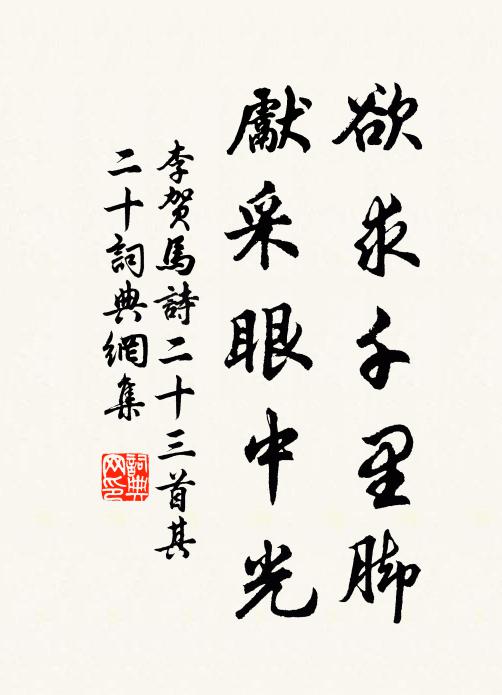 欲求千里脚
獻采眼中光
李賀馬詩二十三首其
二十詞典網集
詞典网印